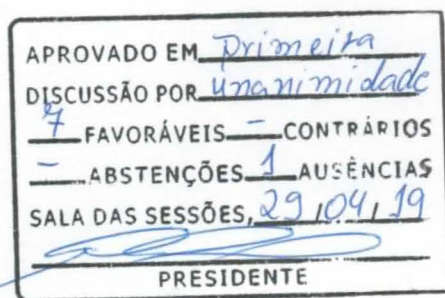 APROVADO EM Primeira
DISCUSSÃO POR unanimidade
7 FAVORÁVEIS - CONTRÁRIOS
- ABSTENÇÕES 1 AUSÊNCIAS
SALA DAS SESSÕES, 29/04/19
PRESIDENTE